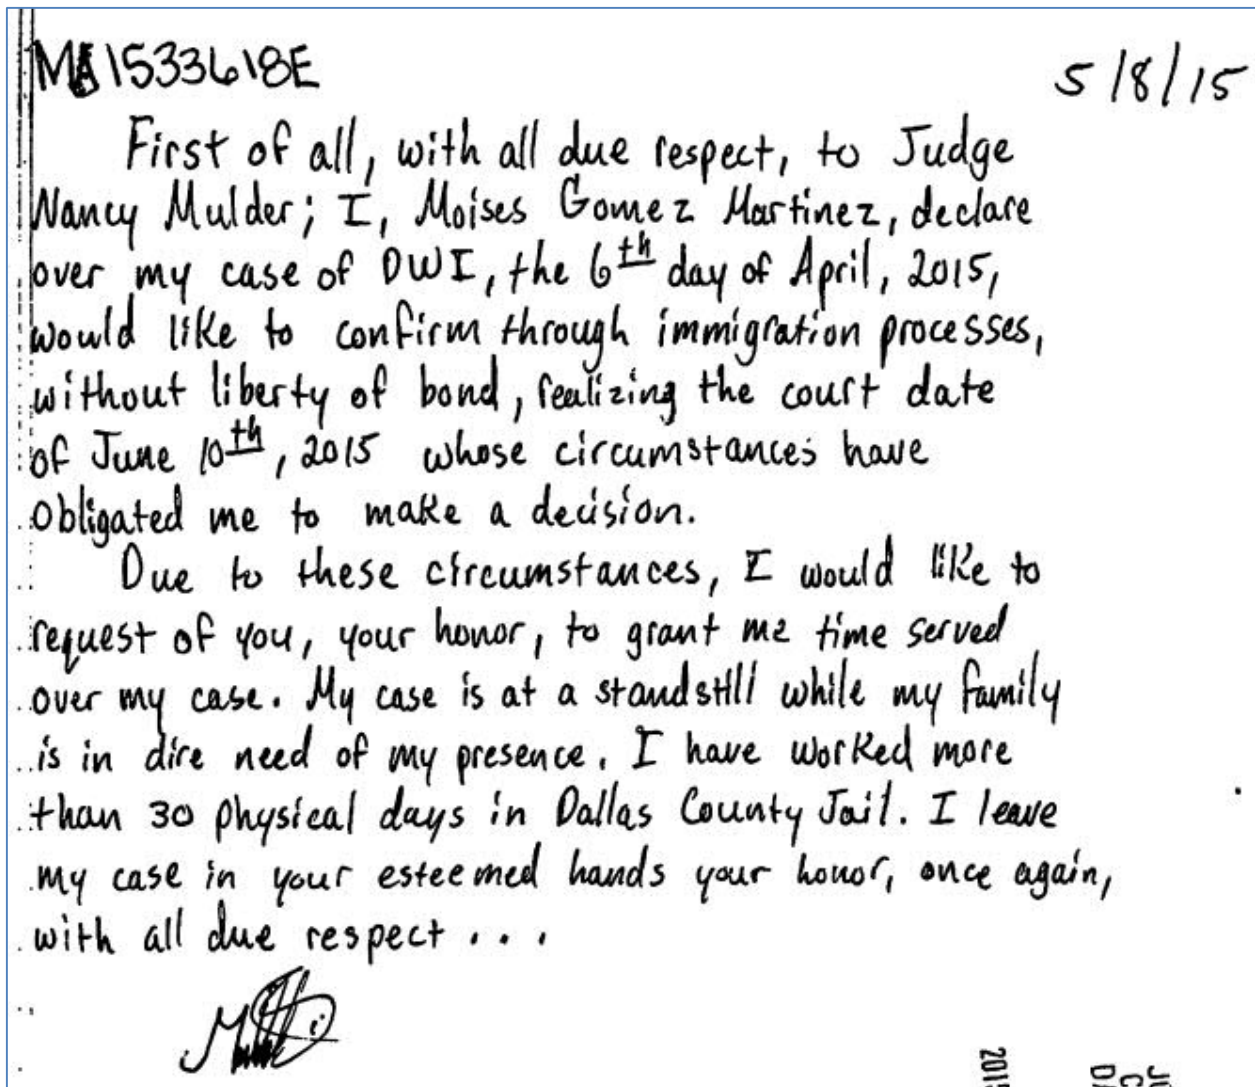 MA1533618E
5/8/15
First of all, with all due respect, to Judge
Nancy Mulder; I, Moises Gomez Martinez, declare
over my case of DWI, the 6th day of April, 2015,
would like to confirm through immigration processes,
without liberty of bond, realizing the court date
of June 10th, 2015 whose circumstances have
obligated me to make a decision.
Due to these circumstances, I would like to
request of you, your honor, to grant me time served
over my case. My case is at a standstill while my family
is in dire need of my presence. I have worked more
than 30 physical days in Dallas County Jail. I leave
my case in your esteemed hands your honor, once again,
with all due respect . . .